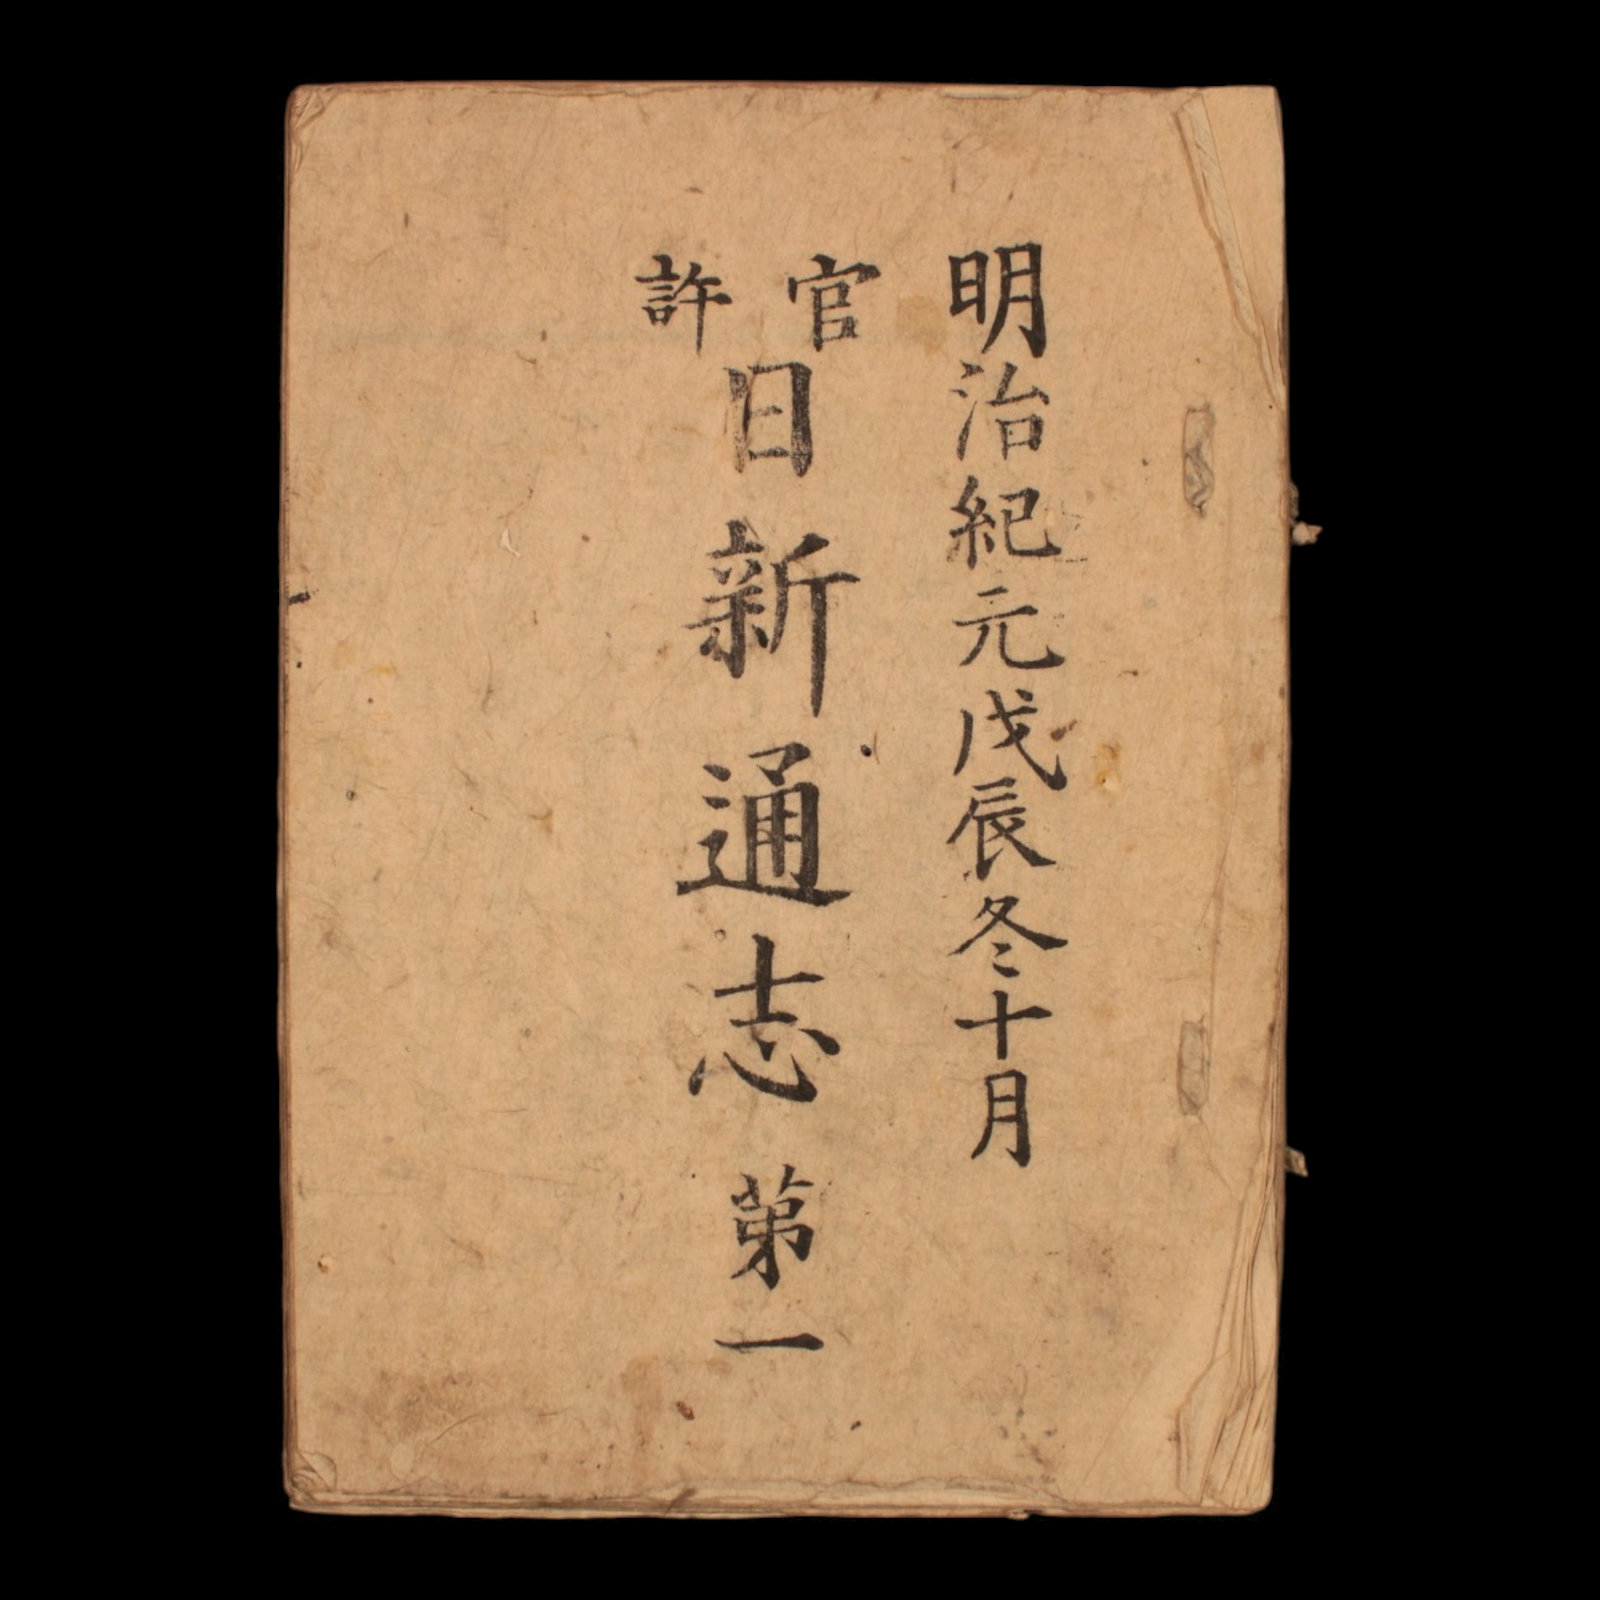 明治紀元戊辰冬十月
官許
日新通志 第一